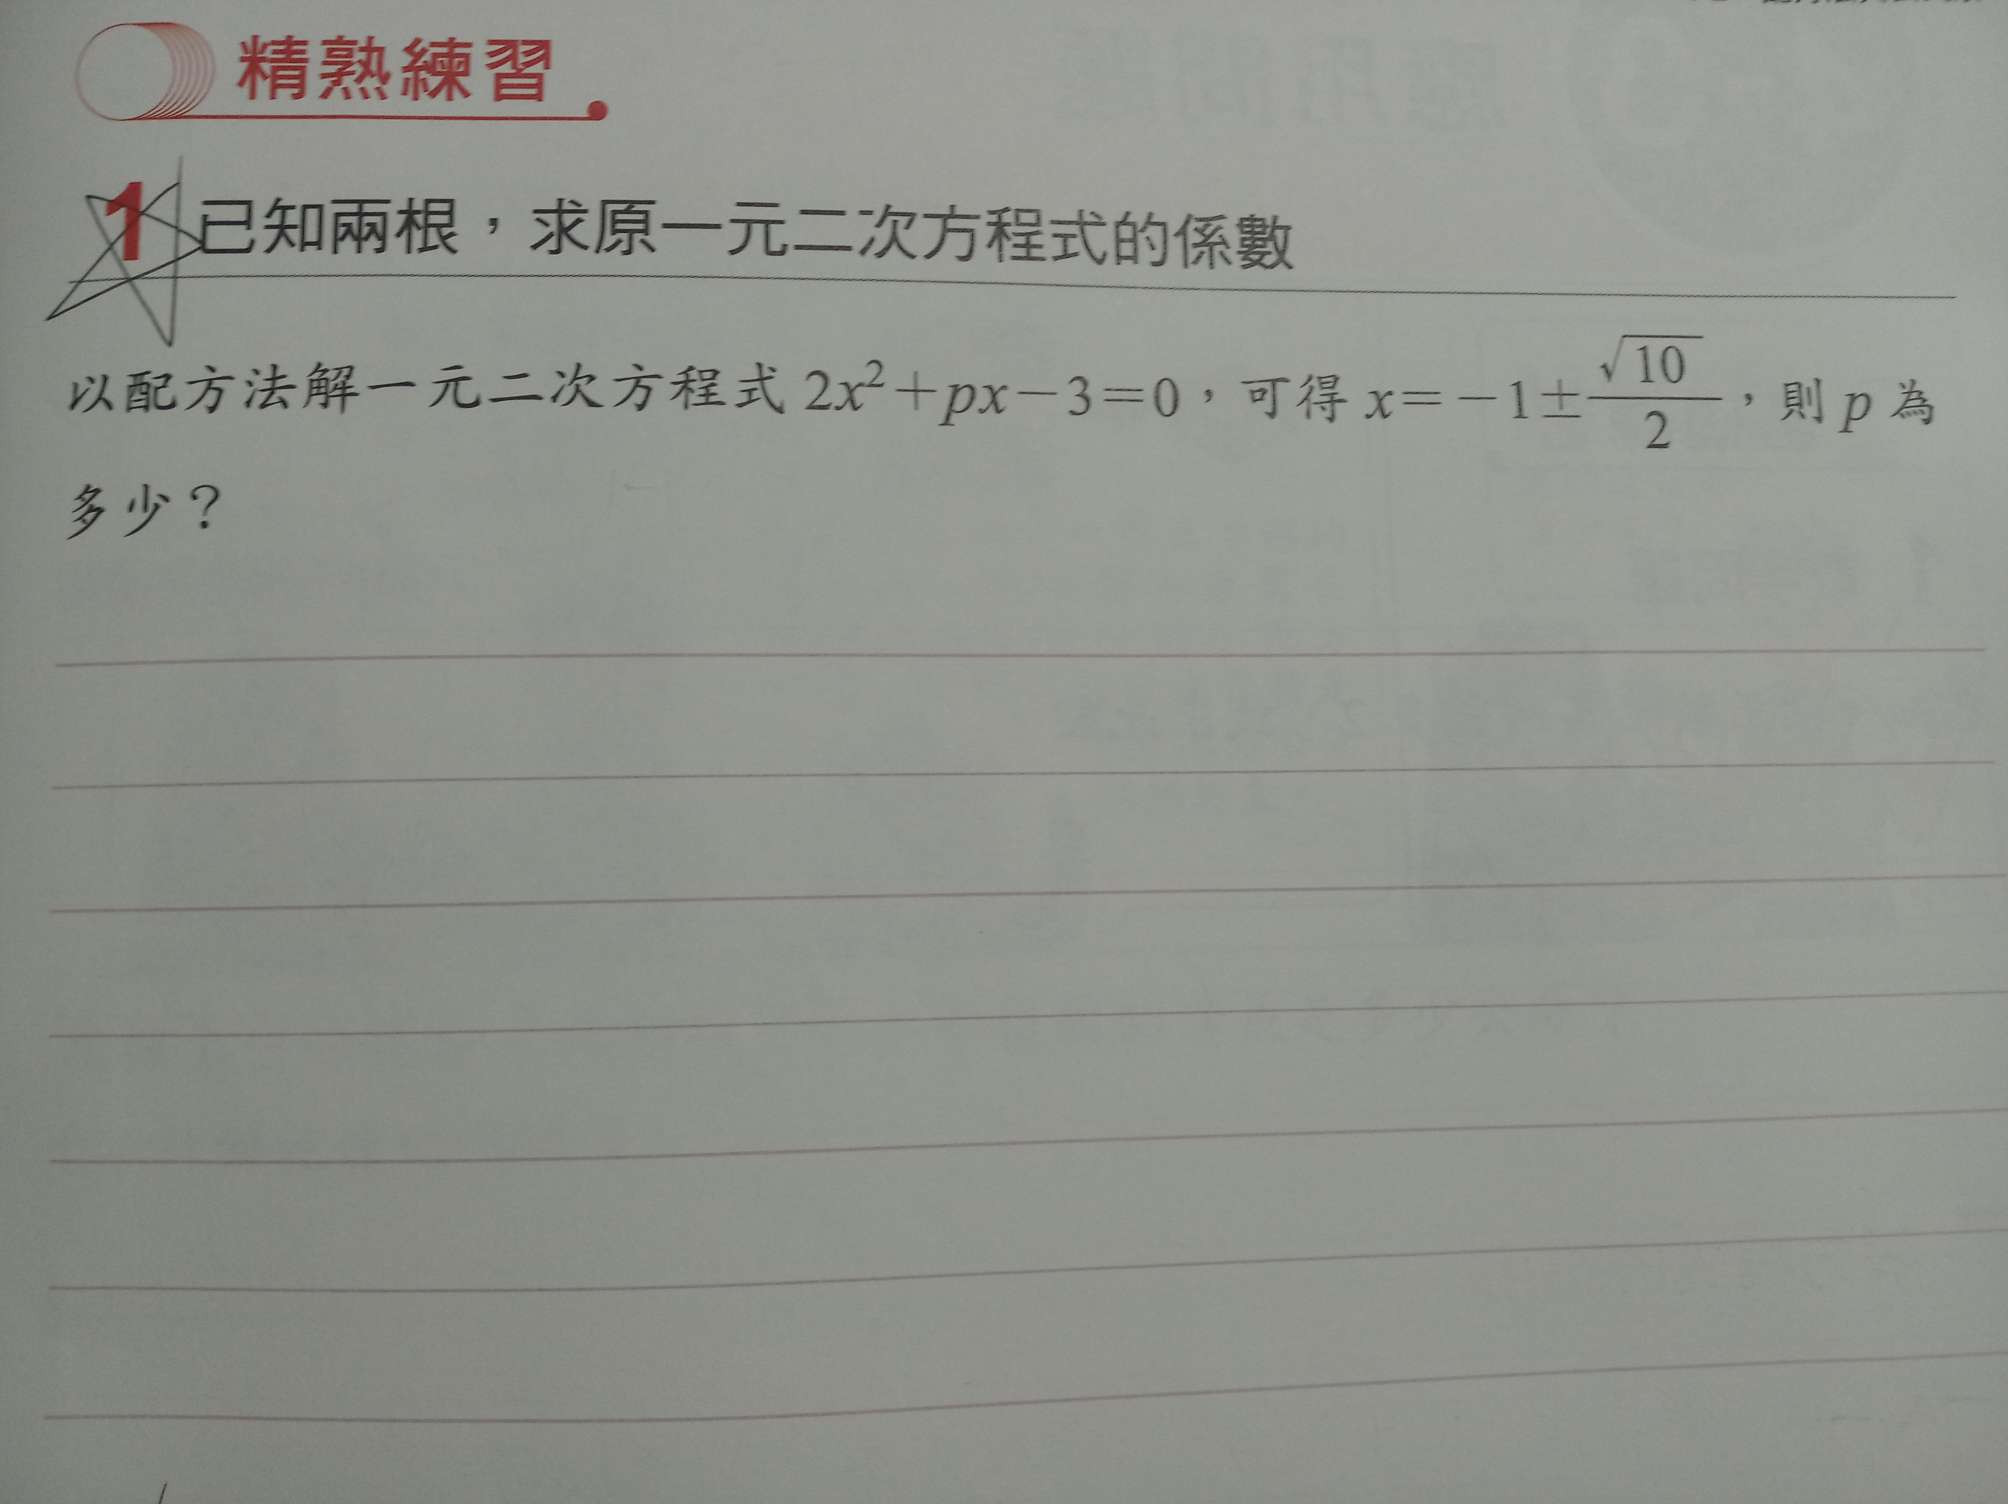 精熟練習
1 已知兩根，求原一元二次方程式的係數
以配方法解一元二次方程式 2x²+px−3=0，可得 x=−1±√10/2，則 p 為
多少？